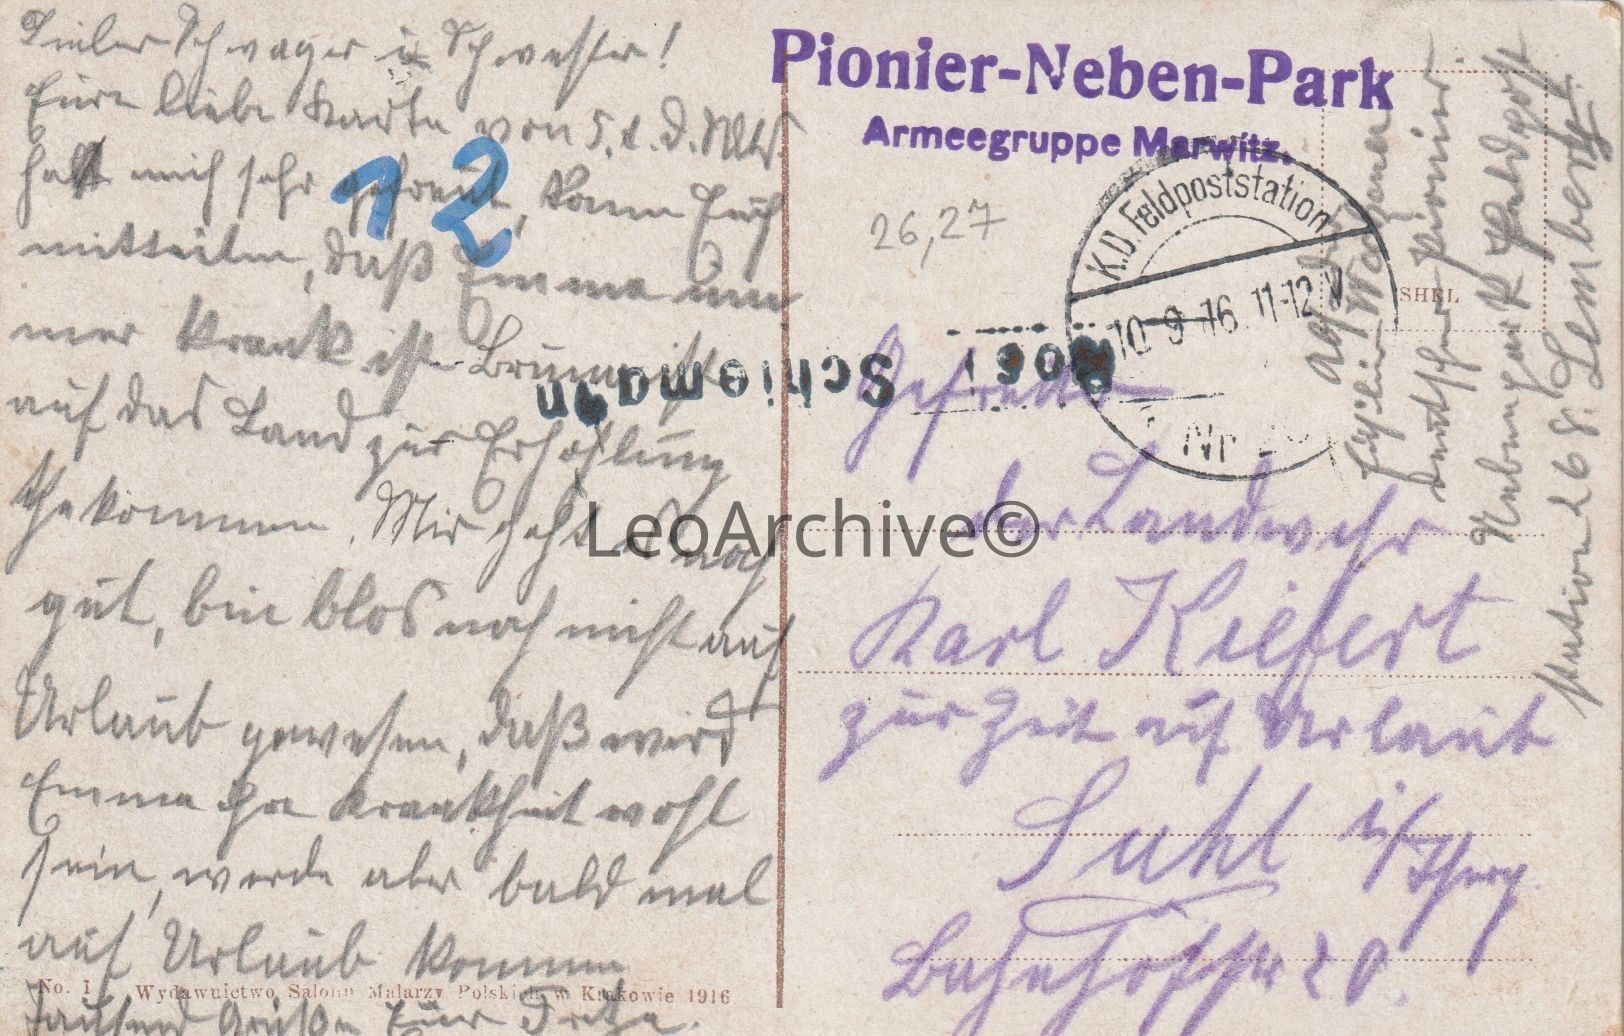 Lieber Schwager u Schwester!
Eure liebe Karte von 5. d. Mts.
hat mich sehr gefreut, kann Euch
mitteilen, daß Emma im
mer krank ist
auf das Land zur Erhohlung
gekommen. Mir geht es noch
gut, bin blos noch nicht auf
Urlaub gewesen, daß wird
Emma ihre Krankheit wohl
sein, werde aber bald mal
auf Urlaub kommen
Tausend Grüße Euer
12
No. 1 Wydawnictwo Salonu Malarzy Polskich w Krakowie 1916
Pionier-Neben-Park
Armeegruppe Marwitz.
26,27
K.D. Feldpoststation
10 9 16 11-12 V
Nr
SHEL
Schiemann
Gefreiter
der Landwehr
Karl Kiefert
zur Zeit auf Urlaub
Suhl i/Thürg.
Bahnhofstr 20.
Deutscher Pionier
Nebenpark Feldpost
station 268. Lemberg
LeoArchive©